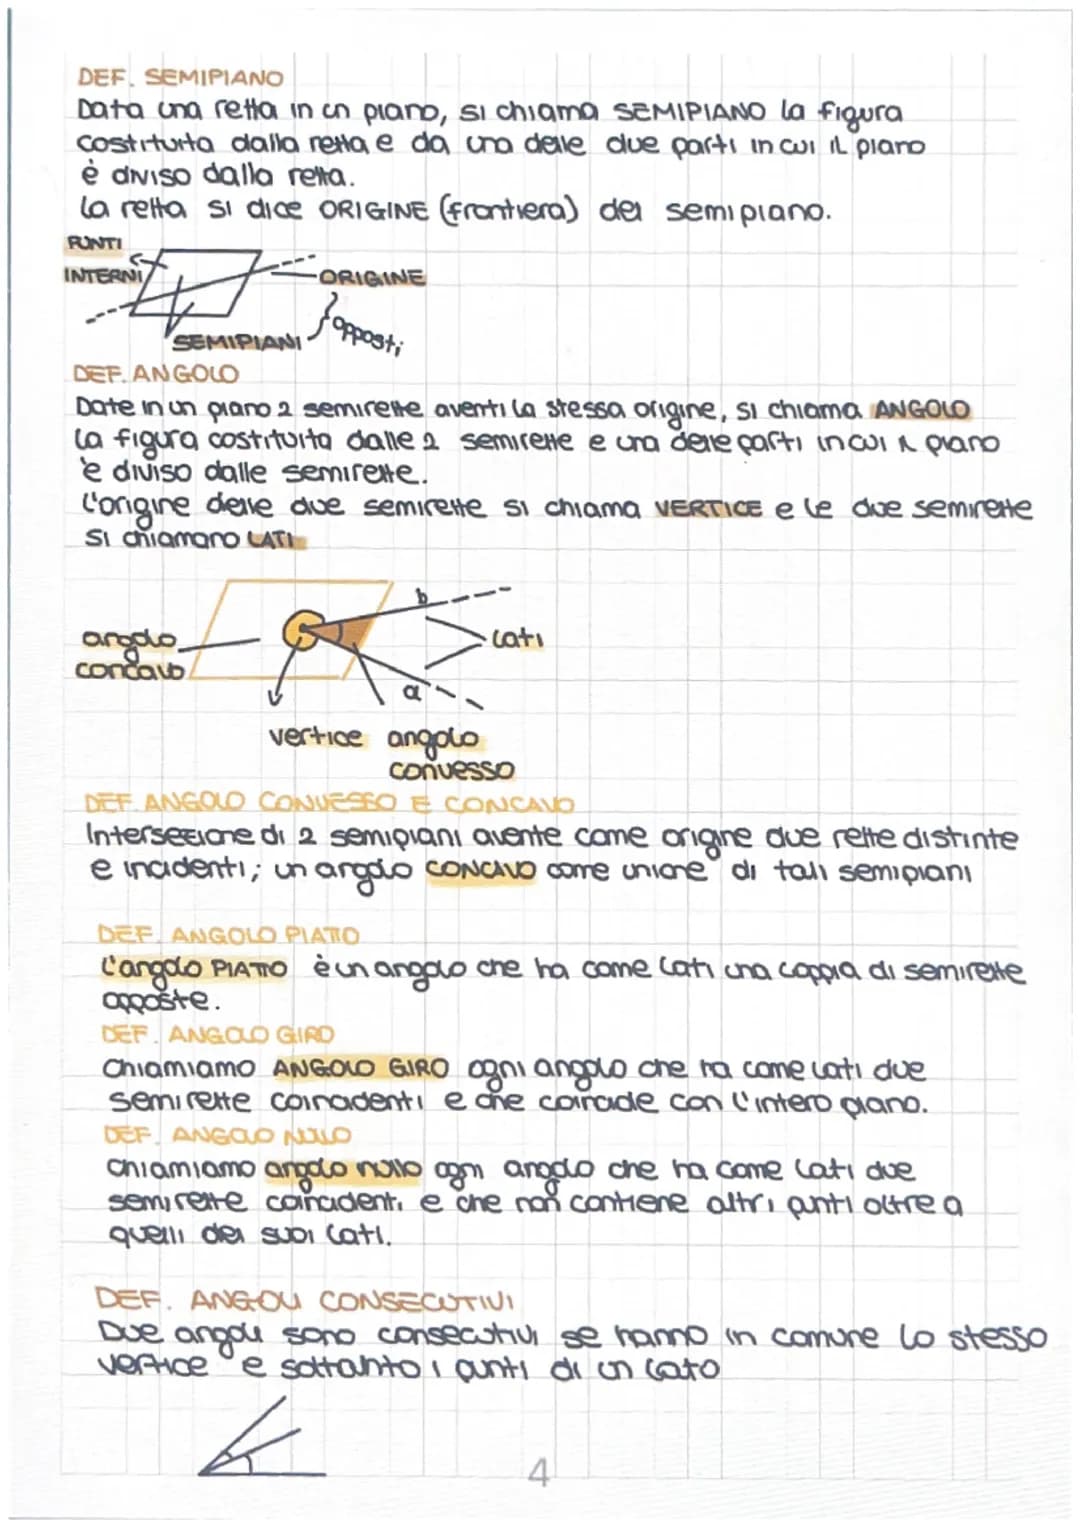 DEF. SEMIPIANO
Data una retta in un piano, si chiama SEMIPIANO la figura
costituita dalla retta e da una delle due parti in cui il piano
è diviso dalla retta.
La retta si dice ORIGINE (frontiera) dei semipiano.
PUNTI
INTERNI
ORIGINE
SEMIPIANI
opposti
DEF. ANGOLO
Date in un piano 2 semirette aventi la stessa origine, si chiama ANGOLO
la figura costituita dalle 2 semirette e una delle parti in cui il piano
è diviso dalle semirette.
L'origine delle due semirette si chiama VERTICE e le due semirette
si chiamano LATI
b
angolo
concavo
lati
a
vertice angolo
convesso
DEF. ANGOLO CONVESSO E CONCAVO
Intersezione di 2 semipiani avente come origine due rette distinte
e incidenti; un angolo CONCAVO come unione di tali semipiani
DEF. ANGOLO PIATTO
L'angolo PIATTO è un angolo che ha come lati una coppia di semirette
opposte.
DEF. ANGOLO GIRO
Chiamiamo ANGOLO GIRO ogni angolo che ha come lati due
semirette coincidenti e che coincide con l'intero piano.
DEF. ANGOLO NULLO
Chiamiamo angolo nullo ogni angolo che ha come lati due
semirette coincidenti e che non contiene altri punti oltre a
quelli dei suoi lati.
DEF. ANGOLI CONSECUTIVI
Due angoli sono consecutivi se hanno in comune lo stesso
vertice e soltanto i punti di un lato
4